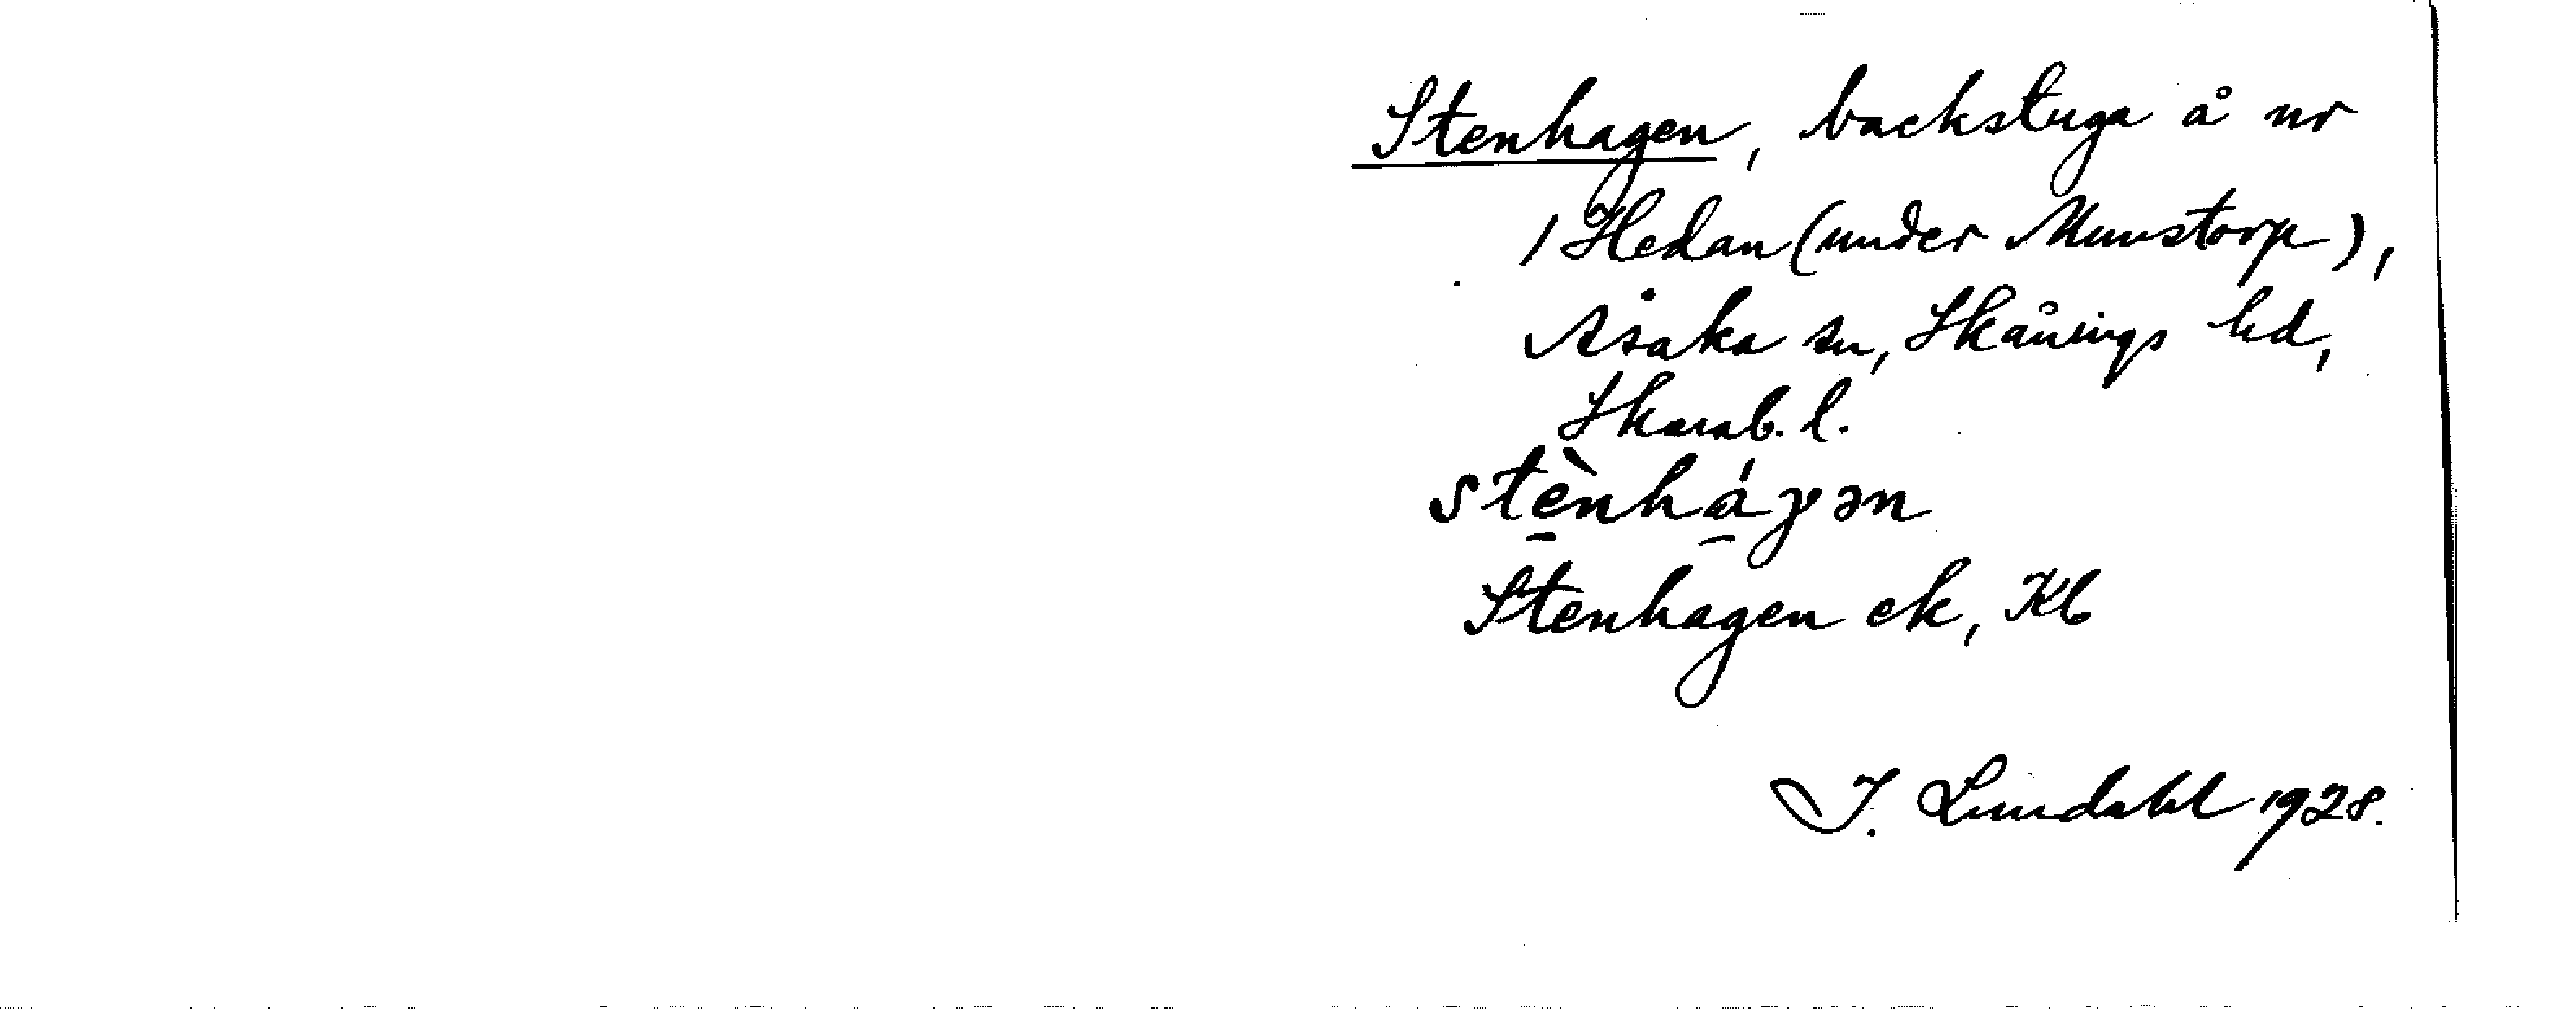 Stenhagen, backstuga å nr
1 Hedan (under Munstorp),
Åsaka sn, Skånings hd,
Skarab. l.
stè̱nhá̱gən
Stenhagen ek, Kb
I. Lundahl 1928.